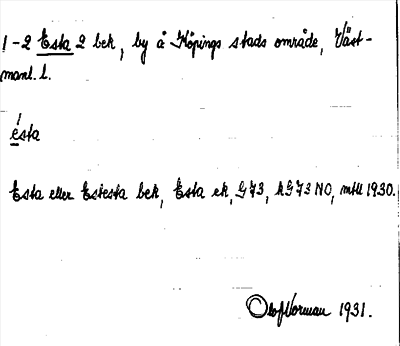 1-2 Esta 2 bek, by å Köpings stads område, Väst-
manl. l.
ésta
Esta eller Estesta bek, Esta ek, G73, kG73 NO, mtll 1930.
Olof Norman 1931.